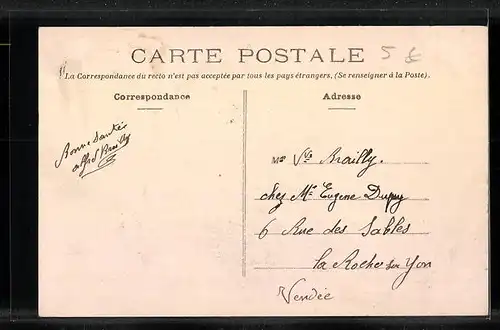 CARTE POSTALE
5 €
La Correspondance du recto n'est pas acceptée par tous les pays étrangers, (Se renseigner à la Poste).
Correspondance
Adresse
Bonne Santée
alfred Brailly
Mme Vve Brailly.
chez Mr Eugene Dupuy
6 Rue des Sables
la Roche sur Yon
Vendée